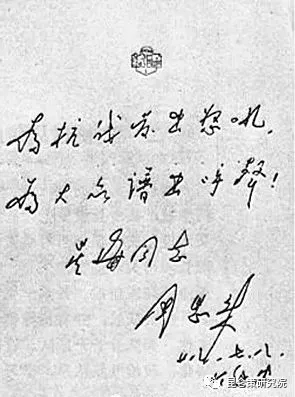 為抗战发出怒吼，
為大众谱出呼聲！
星海同志
周恩来
廿八.七.八.
昆仑策研究院